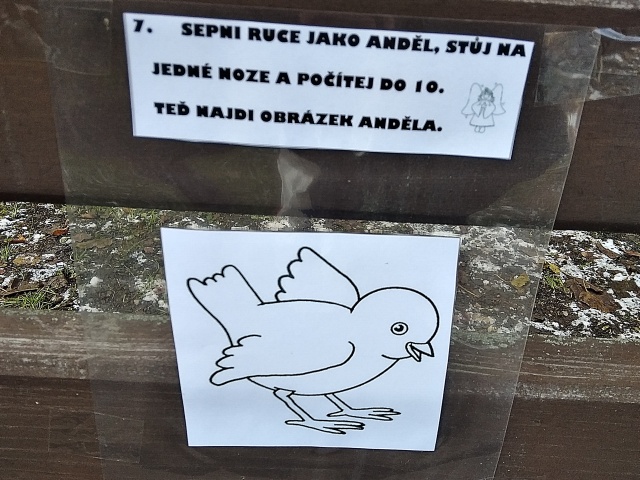 7. SEPNI RUCE JAKO ANDĚL, STŮJ NA
JEDNÉ NOZE A POČÍTEJ DO 10.
TEĎ NAJDI OBRÁZEK ANDĚLA.